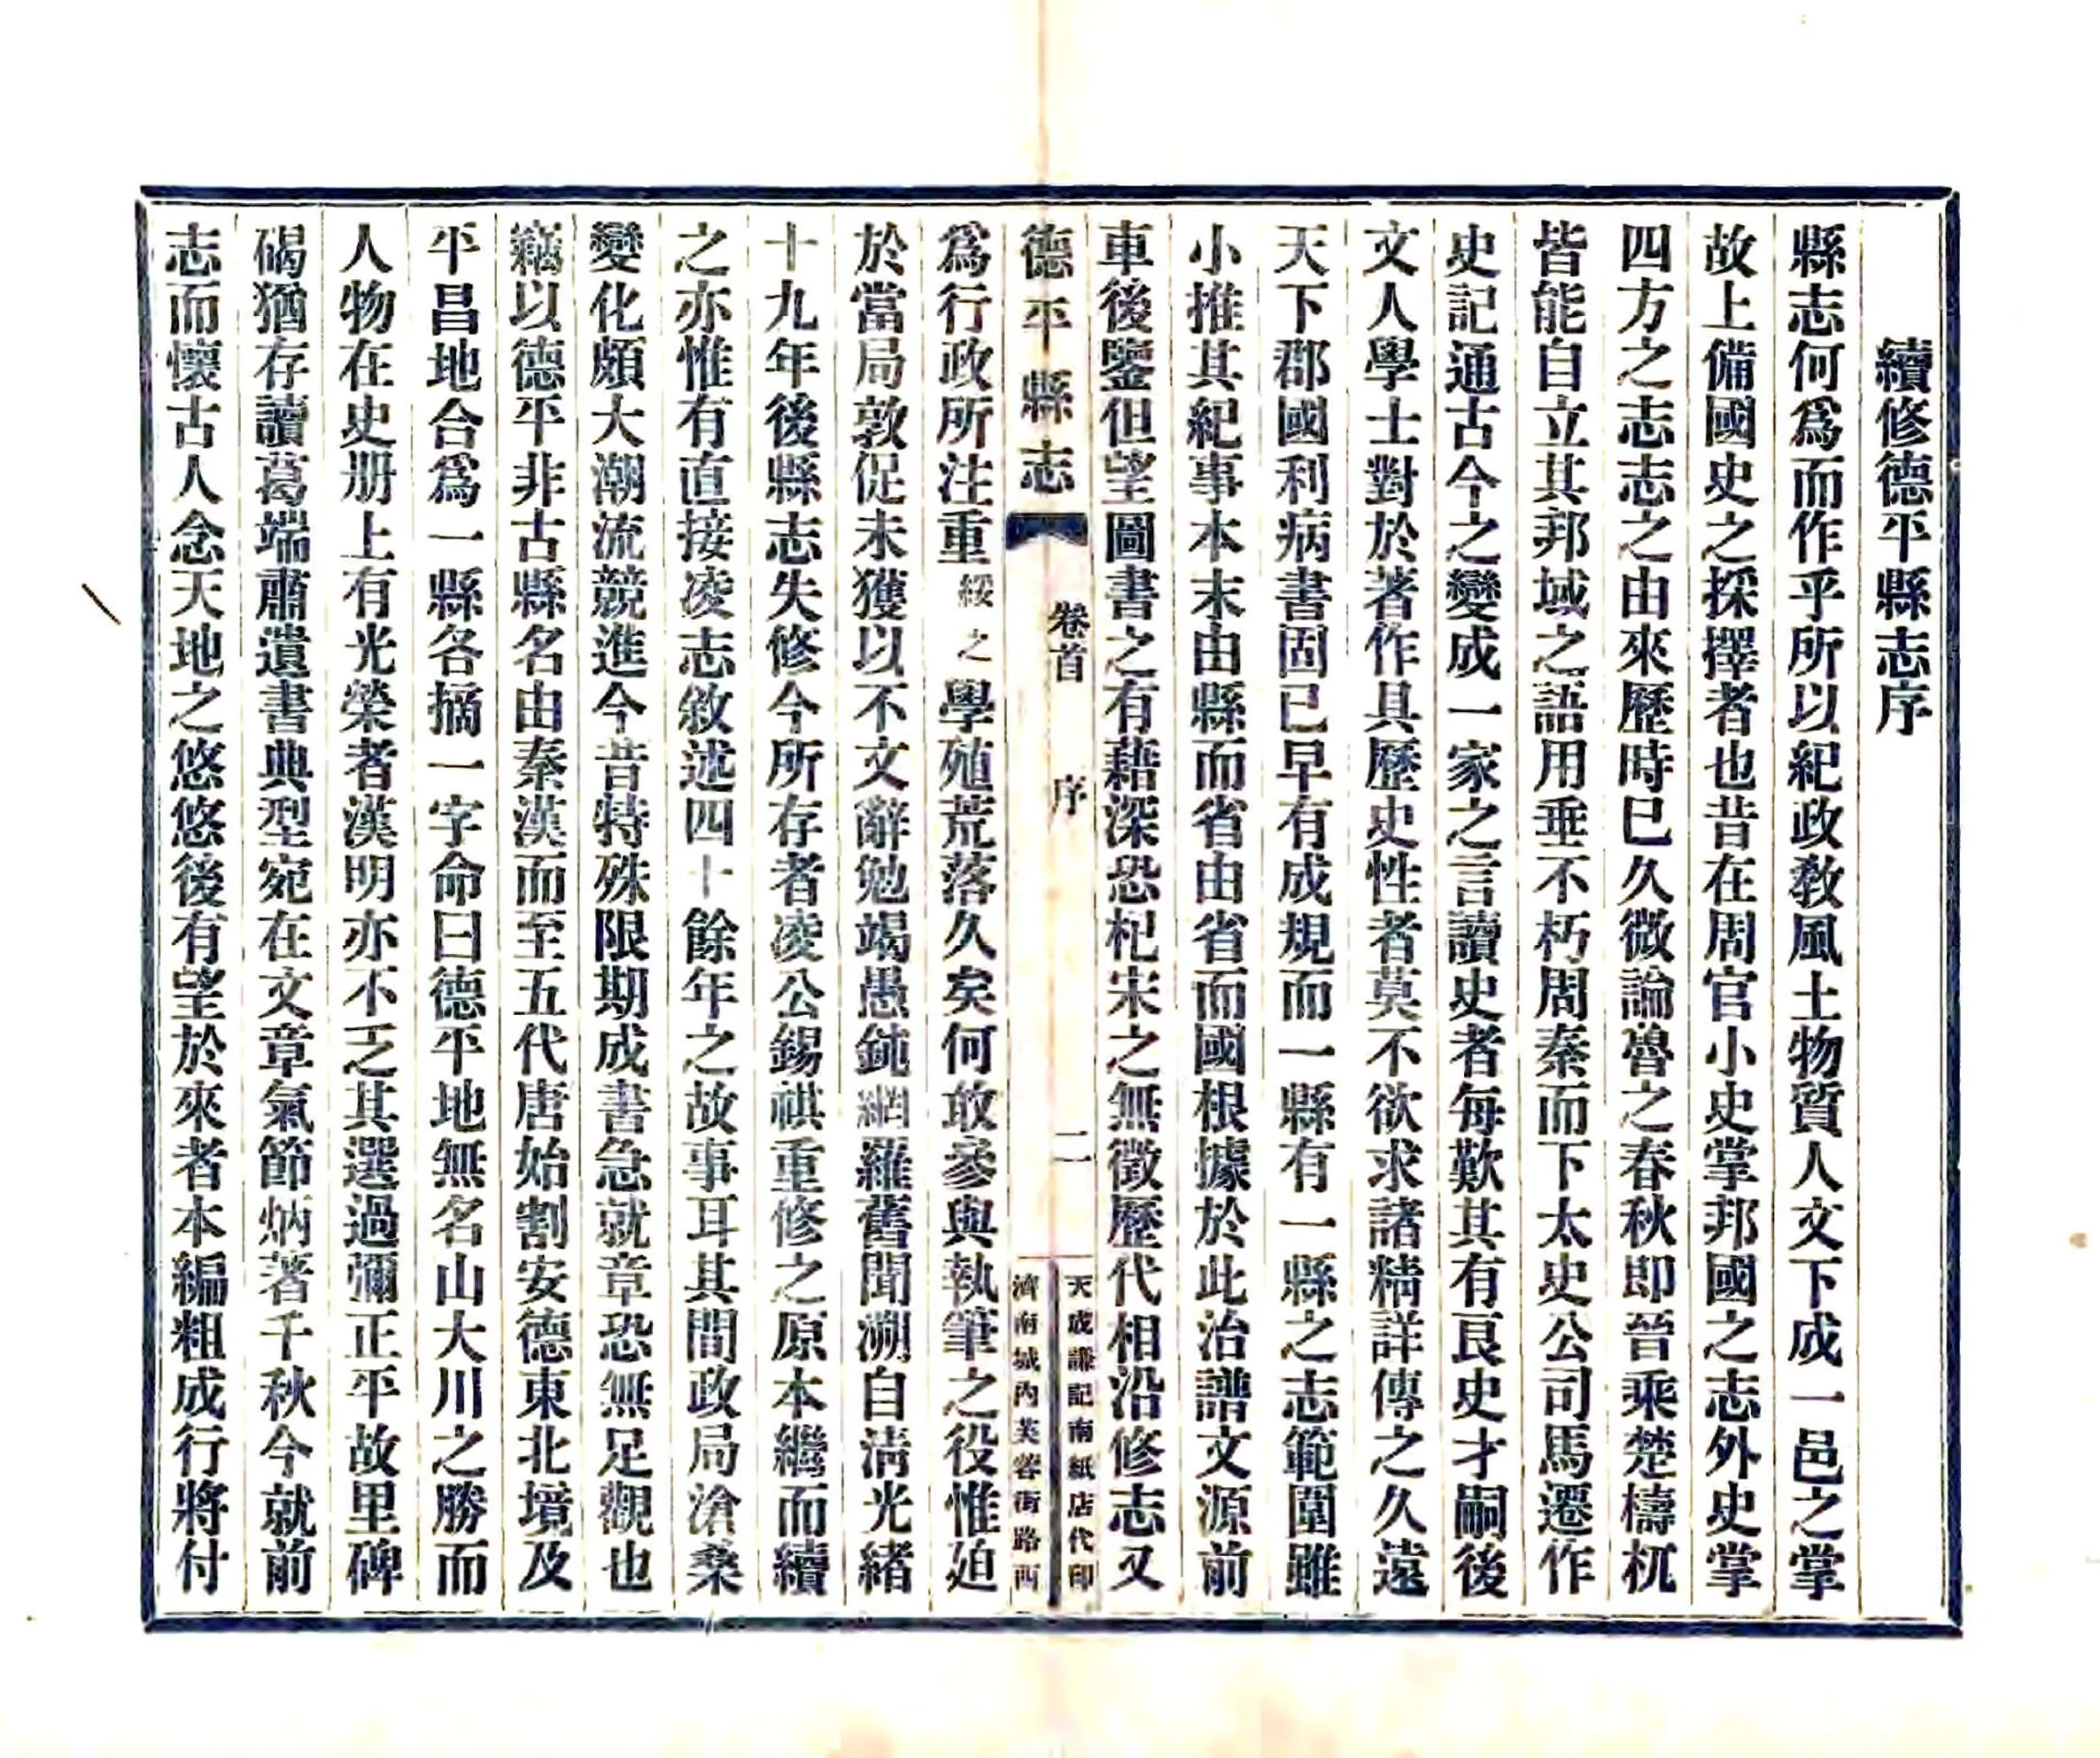 續修德平縣志序
縣志何爲而作乎所以紀政敎風土物質人文下成一邑之掌
故上備國史之採擇者也昔在周官小史掌邦國之志外史掌
四方之志志之由來歷時已久微論魯之春秋即晉乘楚檮杌
皆能自立其邦域之語用垂不朽周秦而下太史公司馬遷作
史記通古今之變成一家之言讀史者每歎其有良史才嗣後
文人學士對於著作具歷史性者莫不欲求諸精詳傳之久遠
天下郡國利病書固已早有成規而一縣有一縣之志範圍雖
小推其紀事本末由縣而省由省而國根據於此治譜文源前
車後鑒但望圖書之有藉深恐杞宋之無徵歷代相沿修志又
德平縣志 卷首 序 二
天成謙記南紙店代印
濟南城內芙蓉街路西
爲行政所注重綏之學殖荒落久矣何敢參與執筆之役惟廹
於當局敦促未獲以不文辭勉竭愚鈍網羅舊聞溯自清光緒
十九年後縣志失修今所存者凌公錫祺重修之原本繼而續
之亦惟有直接凌志敘述四十餘年之故事耳其間政局滄桑
變化頗大潮流競進今昔特殊限期成書急就章恐無足觀也
竊以德平非古縣名由秦漢而至五代唐始割安德東北境及
平昌地合爲一縣各摘一字命曰德平地無名山大川之勝而
人物在史册上有光榮者漢明亦不乏其選過彌正平故里碑
碣猶存讀葛端肅遺書典型宛在文章氣節炳著千秋今就前
志而懷古人念天地之悠悠後有望於來者本編粗成行將付